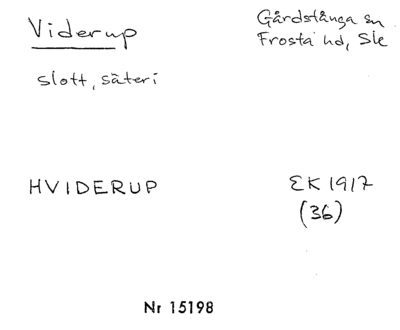 Viderup
Gårdstånga sn
Frosta hd, Sk
slott, säteri
HVIDERUP
EK 1917
(36)
Nr 15198